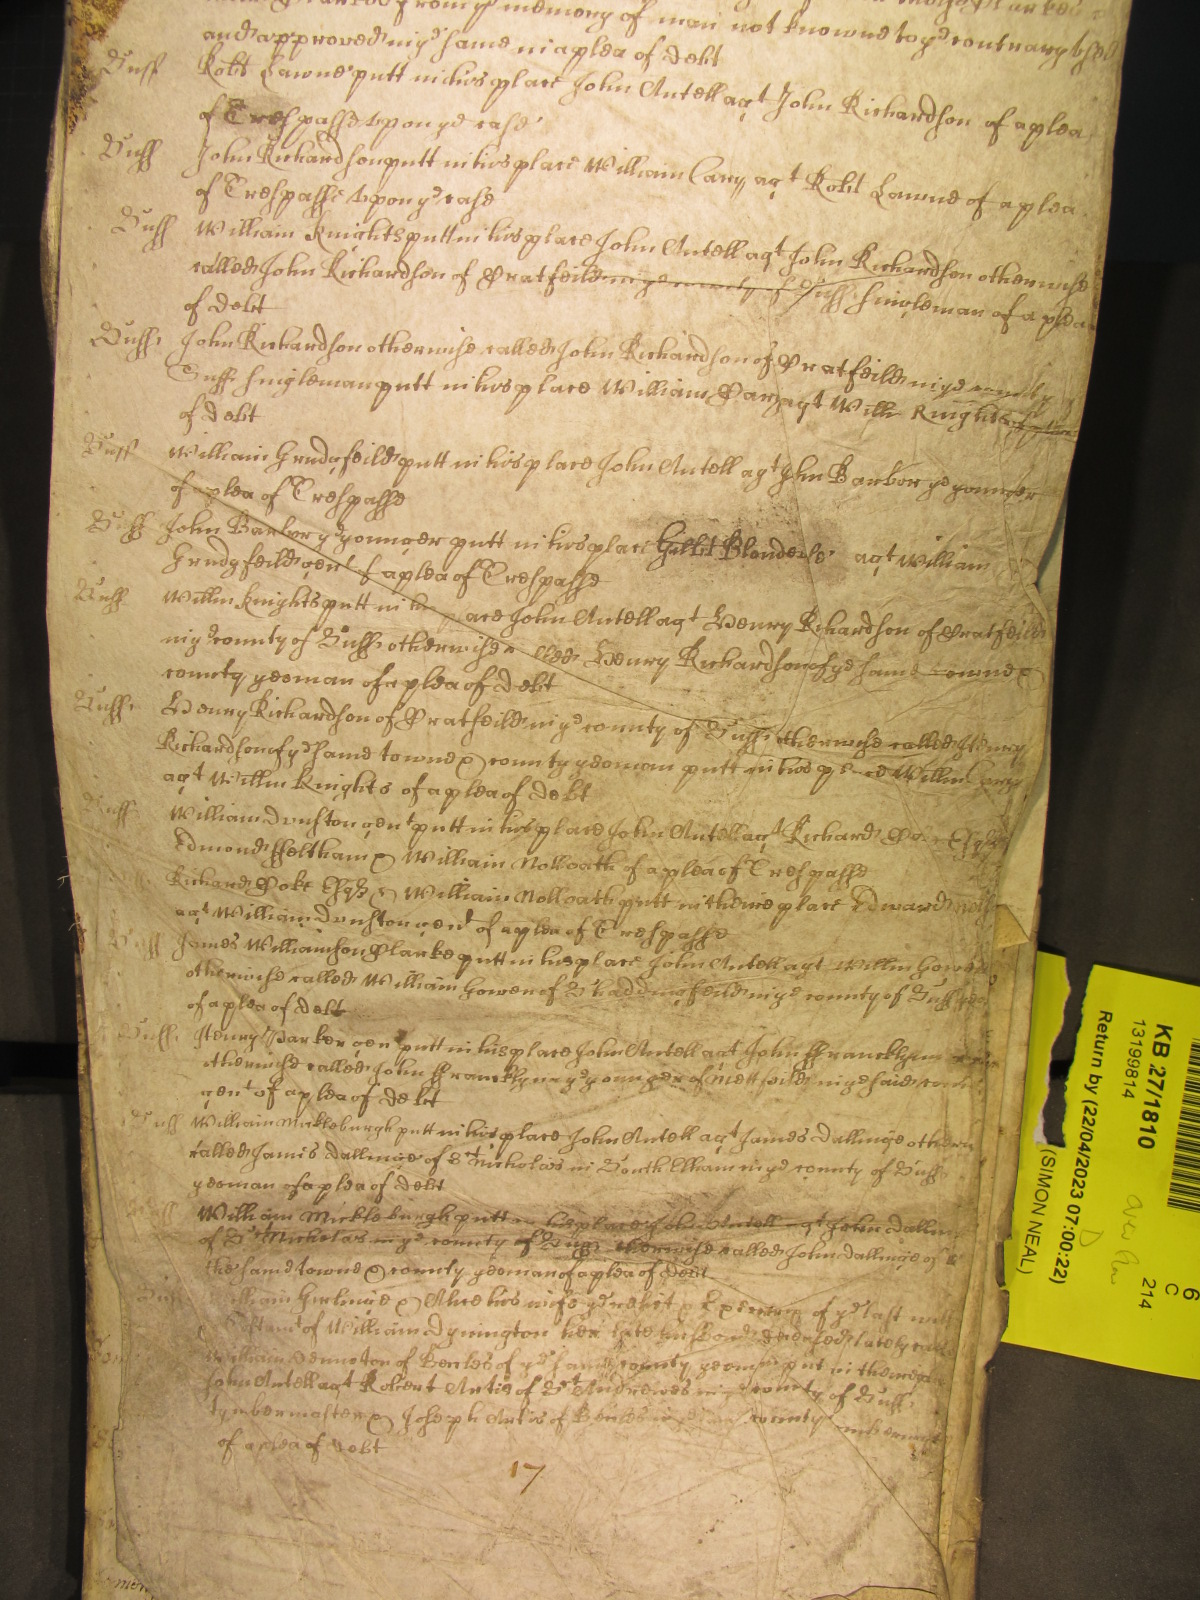 from ye memory of man not knowne to ye contrary used
and approved in ye same in a plea of debt
Suff Robt Lawne putt in his place John Antell agt John Richardson of a plea
of Trespasse upon ye case
Suff John Richardson putt in his place William Cary agt Robt Lawne of a plea
of Trespasse upon ye case
Suff William Knights putt in his place John Antell agt John Richardson otherwise
called John Richardson of Pratfeild in ye county of Suff singleman of a plea
of debt
Suff John Richardson otherwise called John Richardson of Pratfeild in ye county of
Suff singleman putt in his place William Cary agt Willm Knights
of debt
Suff William Grudgfeild putt in his place John Antell agt John Barbor ye younger
of a plea of Trespasse
Suff John Barbor ye younger putt in his place Gilbt Blonderle agt William
Grudgfeild gent of a plea of Trespasse
Suff Willm Knights putt in his place John Antell agt Henry Richardson of Pratfeild
in ye county of Suff otherwise called Henry Richardson of ye same towne &
county yeoman of a plea of debt
Suff Henry Richardson of Pratfeild in ye county of Suff otherwise called Henry
Richardson of ye same towne & county yeoman putt in his place Willm Cary
agt Willm Knights of a plea of debt
Suff William Dunston gent putt in his place John Antell agt Richard Esqr
Edmond Feltham & William Nolloath of a plea of Trespasse
Richard Esqr & William Nolloath putt in theire place Edward
agt William Dunston gent of a plea of Trespasse
Suff James Williamson Clarke putt in his place John Antell agt Willm Gowen
otherwise called William Gowen of Shaddingfeild in ye county of Suff
of a plea of debt
Suff Henry Parker gent putt in his place John Antell agt John Francklyn
otherwise called John Francklyn ye younger of Mettfeild in ye said
gent of a plea of debt
Suff William Mickleburgh putt in his place John Antell agt James Dallinge otherw
called James Dallinge of St Nicholas in South Elham in ye county of Suff
yeoman of a plea of debt
Suff William Mickleburgh putt in his place John Antell agt John Dallin
of St Nicholas in ye county of Suff otherwise called John Dallinge of
the same towne & county yeoman of a plea of debt
Suff William Girlinge & Alice his wife ye relict & Executrix of ye last will
& Testamt of William Dyrington her late husband deceased lately
William Denneton of Beccles of ye same county yeoman put in theire place
John Antell agt Robert Artis of St Andrewes in ye county of Suff
tymbermaster & Joseph Artis of Beccles in county
of a plea of debt
17
KB 27/1810
13199814
Return by (22/04/2023 07:00:22)
(SIMON NEAL)
D
6
C
214